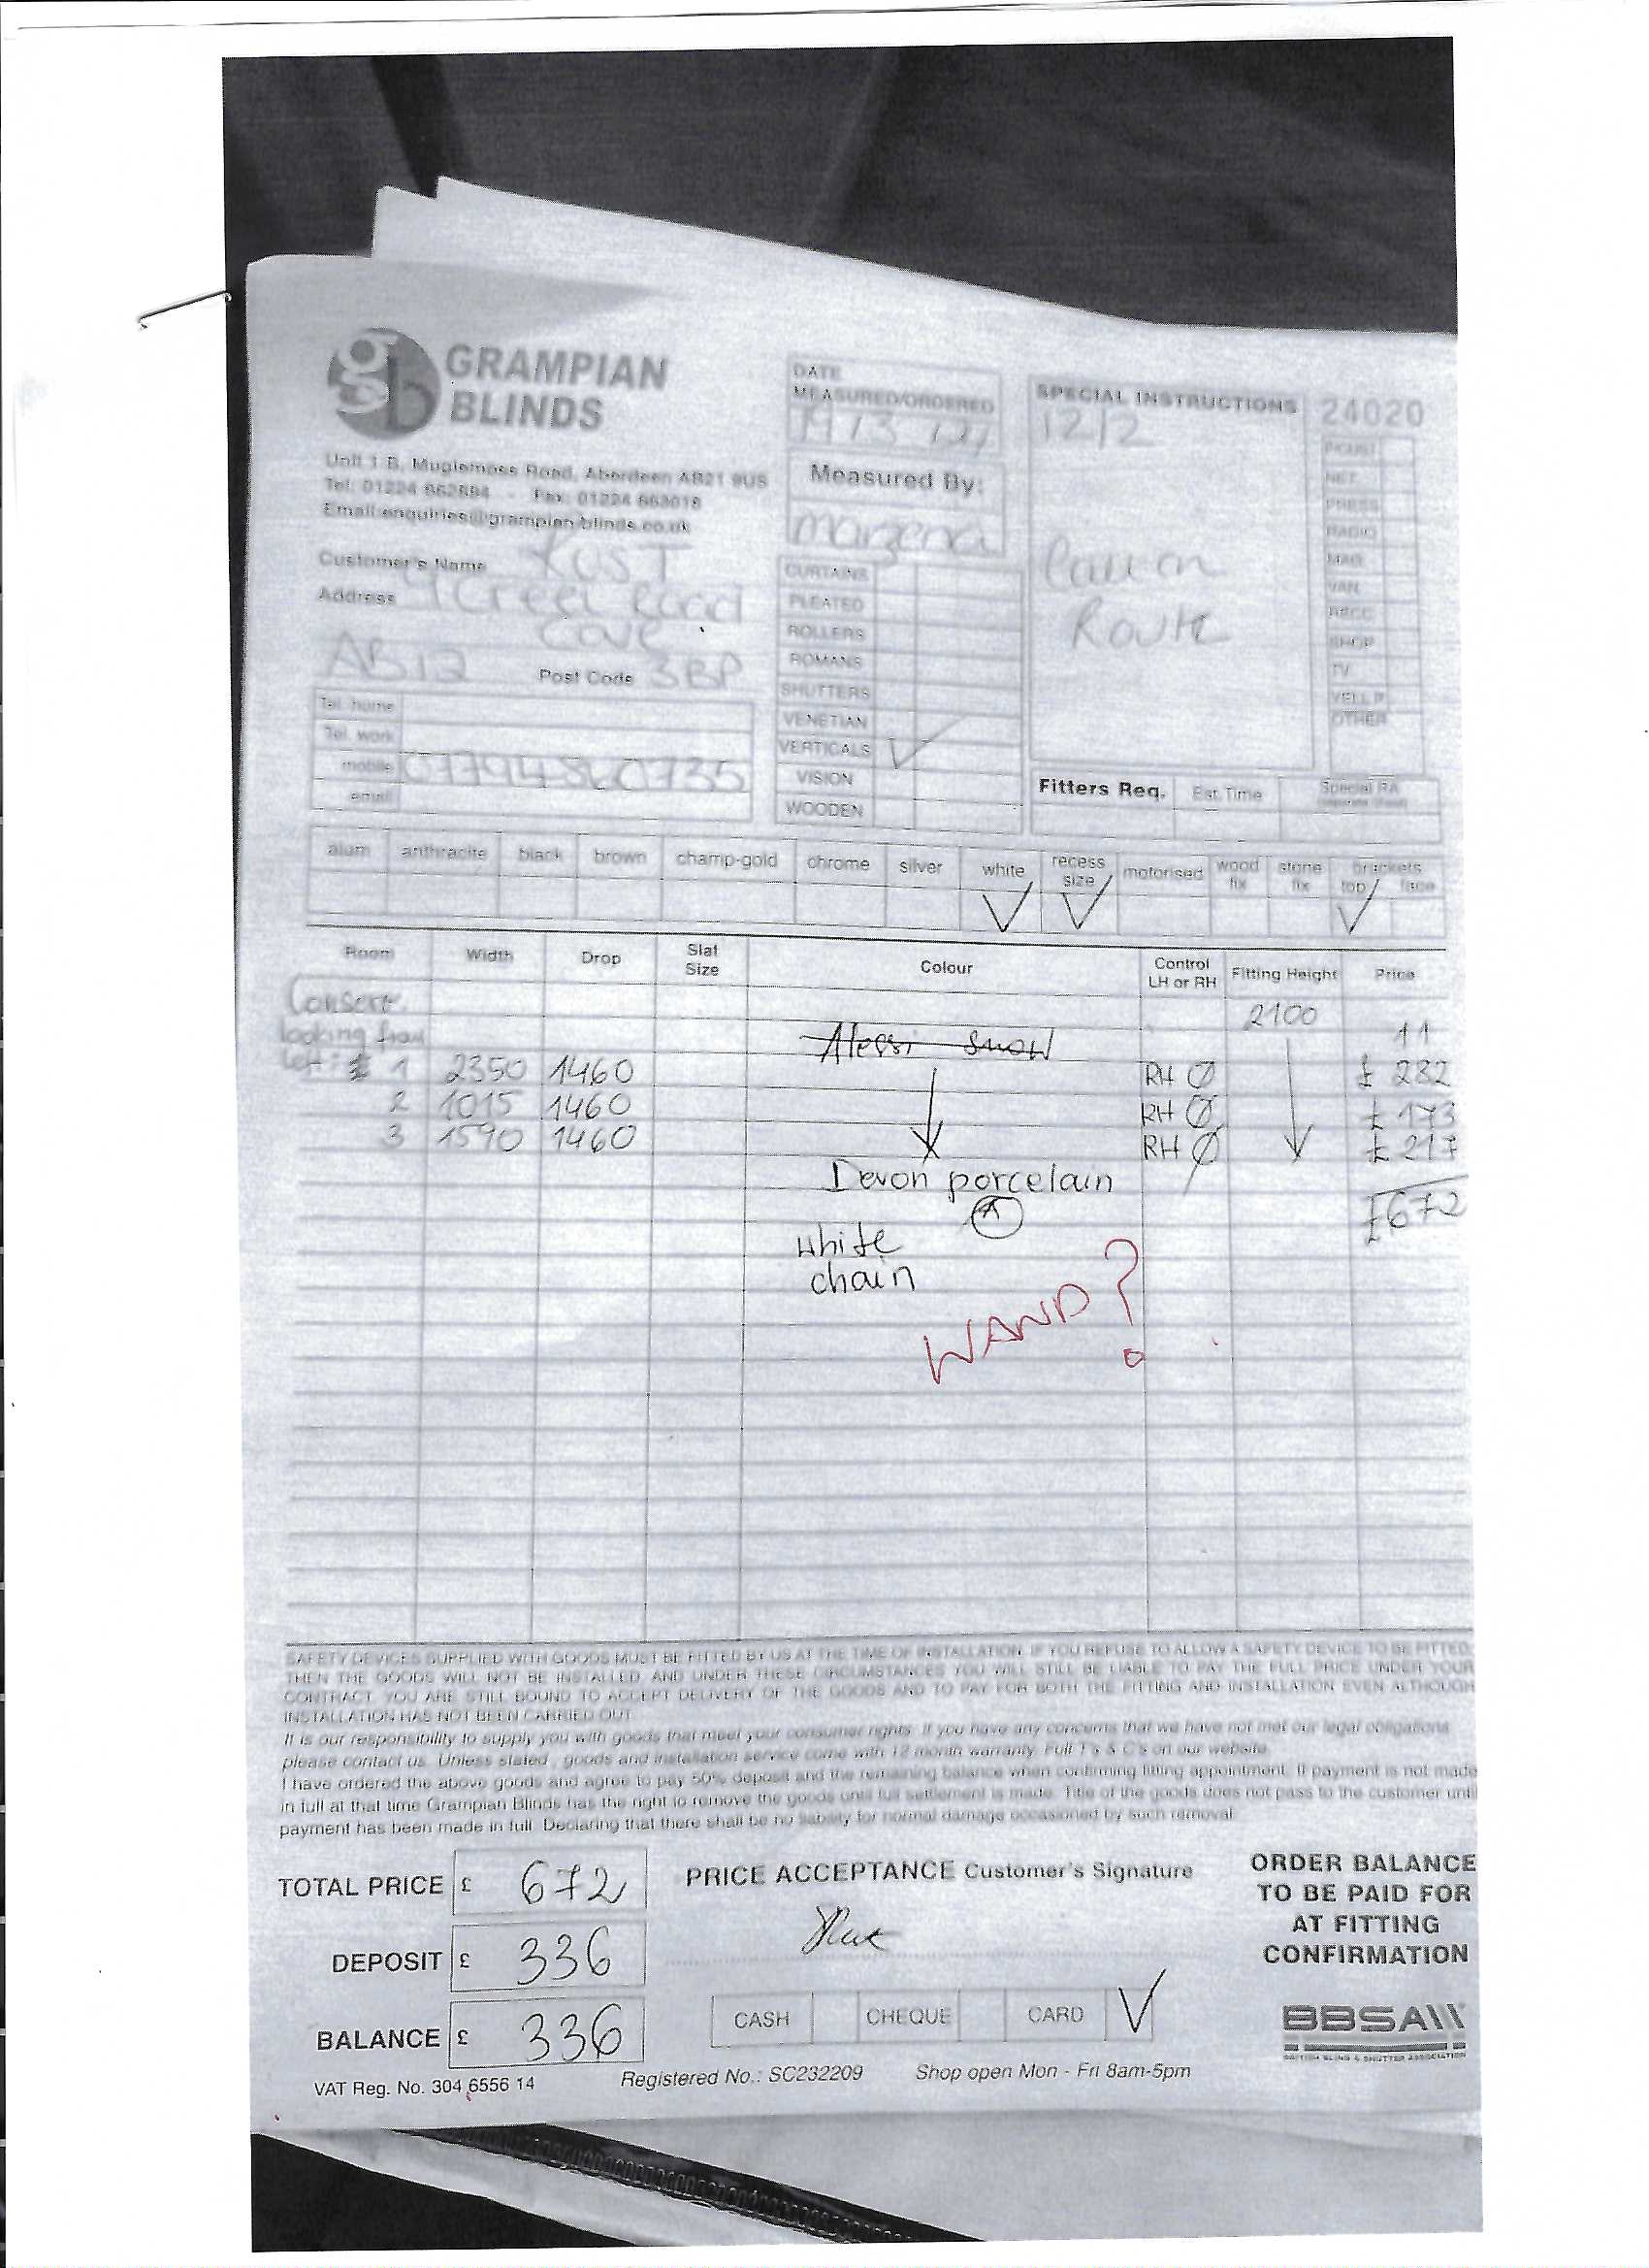 GRAMPIAN
BLINDS
Unit 1 B, Mugiemoss Road, Aberdeen AB21 9US
Tel: 01224 662884 Fax: 01224 663018
Email:enquiries@grampian-blinds.co.uk
DATE
MEASURED/ORDERED
Measured By:
Marzena
SPECIAL INSTRUCTIONS
12/2
Route
24020
POINT
NET
PRESS
RADIO
MAG
VAN
RECC
SHOP
TV
YELL P
OTHER
Customer's Name
Address
Cove
AB12 Post Code 3BP
Tel. home
Tel. work
mobile
email
CURTAINS
PLEATED
ROLLERS
ROMANS
SHUTTERS
VENETIAN
VERTICALS ✓
VISION
WOODEN
Fitters Req. Est. Time
alum anthracite black brown champ-gold chrome silver white recess size motorised wood fix stone fix brackets top face
✓ ✓ ✓
Room Width Drop Slat Size Colour Control LH or RH Fitting Height Price
Conserv. 2100
looking from Alessi snow 11
1 2350 1460 RH £ 282
2 1015 1460 RH £ 173
3 1590 1460 RH £ 217
Devon porcelain £672
A
white
chain
WAND?
SAFETY DEVICES SUPPLIED WITH GOODS MUST BE FITTED BY US AT THE TIME OF INSTALLATION. IF YOU REFUSE TO ALLOW A SAFETY DEVICE TO BE FITTED
THEN THE GOODS WILL NOT BE INSTALLED AND UNDER THESE CIRCUMSTANCES YOU WILL STILL BE LIABLE TO PAY THE FULL PRICE UNDER YOUR
CONTRACT. YOU ARE STILL BOUND TO ACCEPT DELIVERY OF THE GOODS AND TO PAY FOR BOTH THE FITTING AND INSTALLATION EVEN ALTHOUGH
INSTALLATION HAS NOT BEEN CARRIED OUT
It is our responsibility to supply you with goods that meet your consumer rights. If you have any concerns that we have not met our legal obligations
please contact us. Unless stated, goods and installation service come with 12 month warranty. Full T's & C's on our website.
I have ordered the above goods and agree to pay 50% deposit and the remaining balance when confirming fitting appointment. If payment is not made
in full at that time Grampian Blinds has the right to remove the goods until full settlement is made. Title of the goods does not pass to the customer until
payment has been made in full. Declaring that there shall be no liability for normal damage occasioned by such removal.
TOTAL PRICE £ 672
PRICE ACCEPTANCE Customer's Signature
ORDER BALANCE
TO BE PAID FOR
AT FITTING
CONFIRMATION
DEPOSIT £ 336
BALANCE £ 336
CASH CHEQUE CARD ✓
BBSA
BRITISH BLIND & SHUTTER ASSOCIATION
VAT Reg. No. 304 6556 14 Registered No.: SC232209 Shop open Mon - Fri 8am-5pm